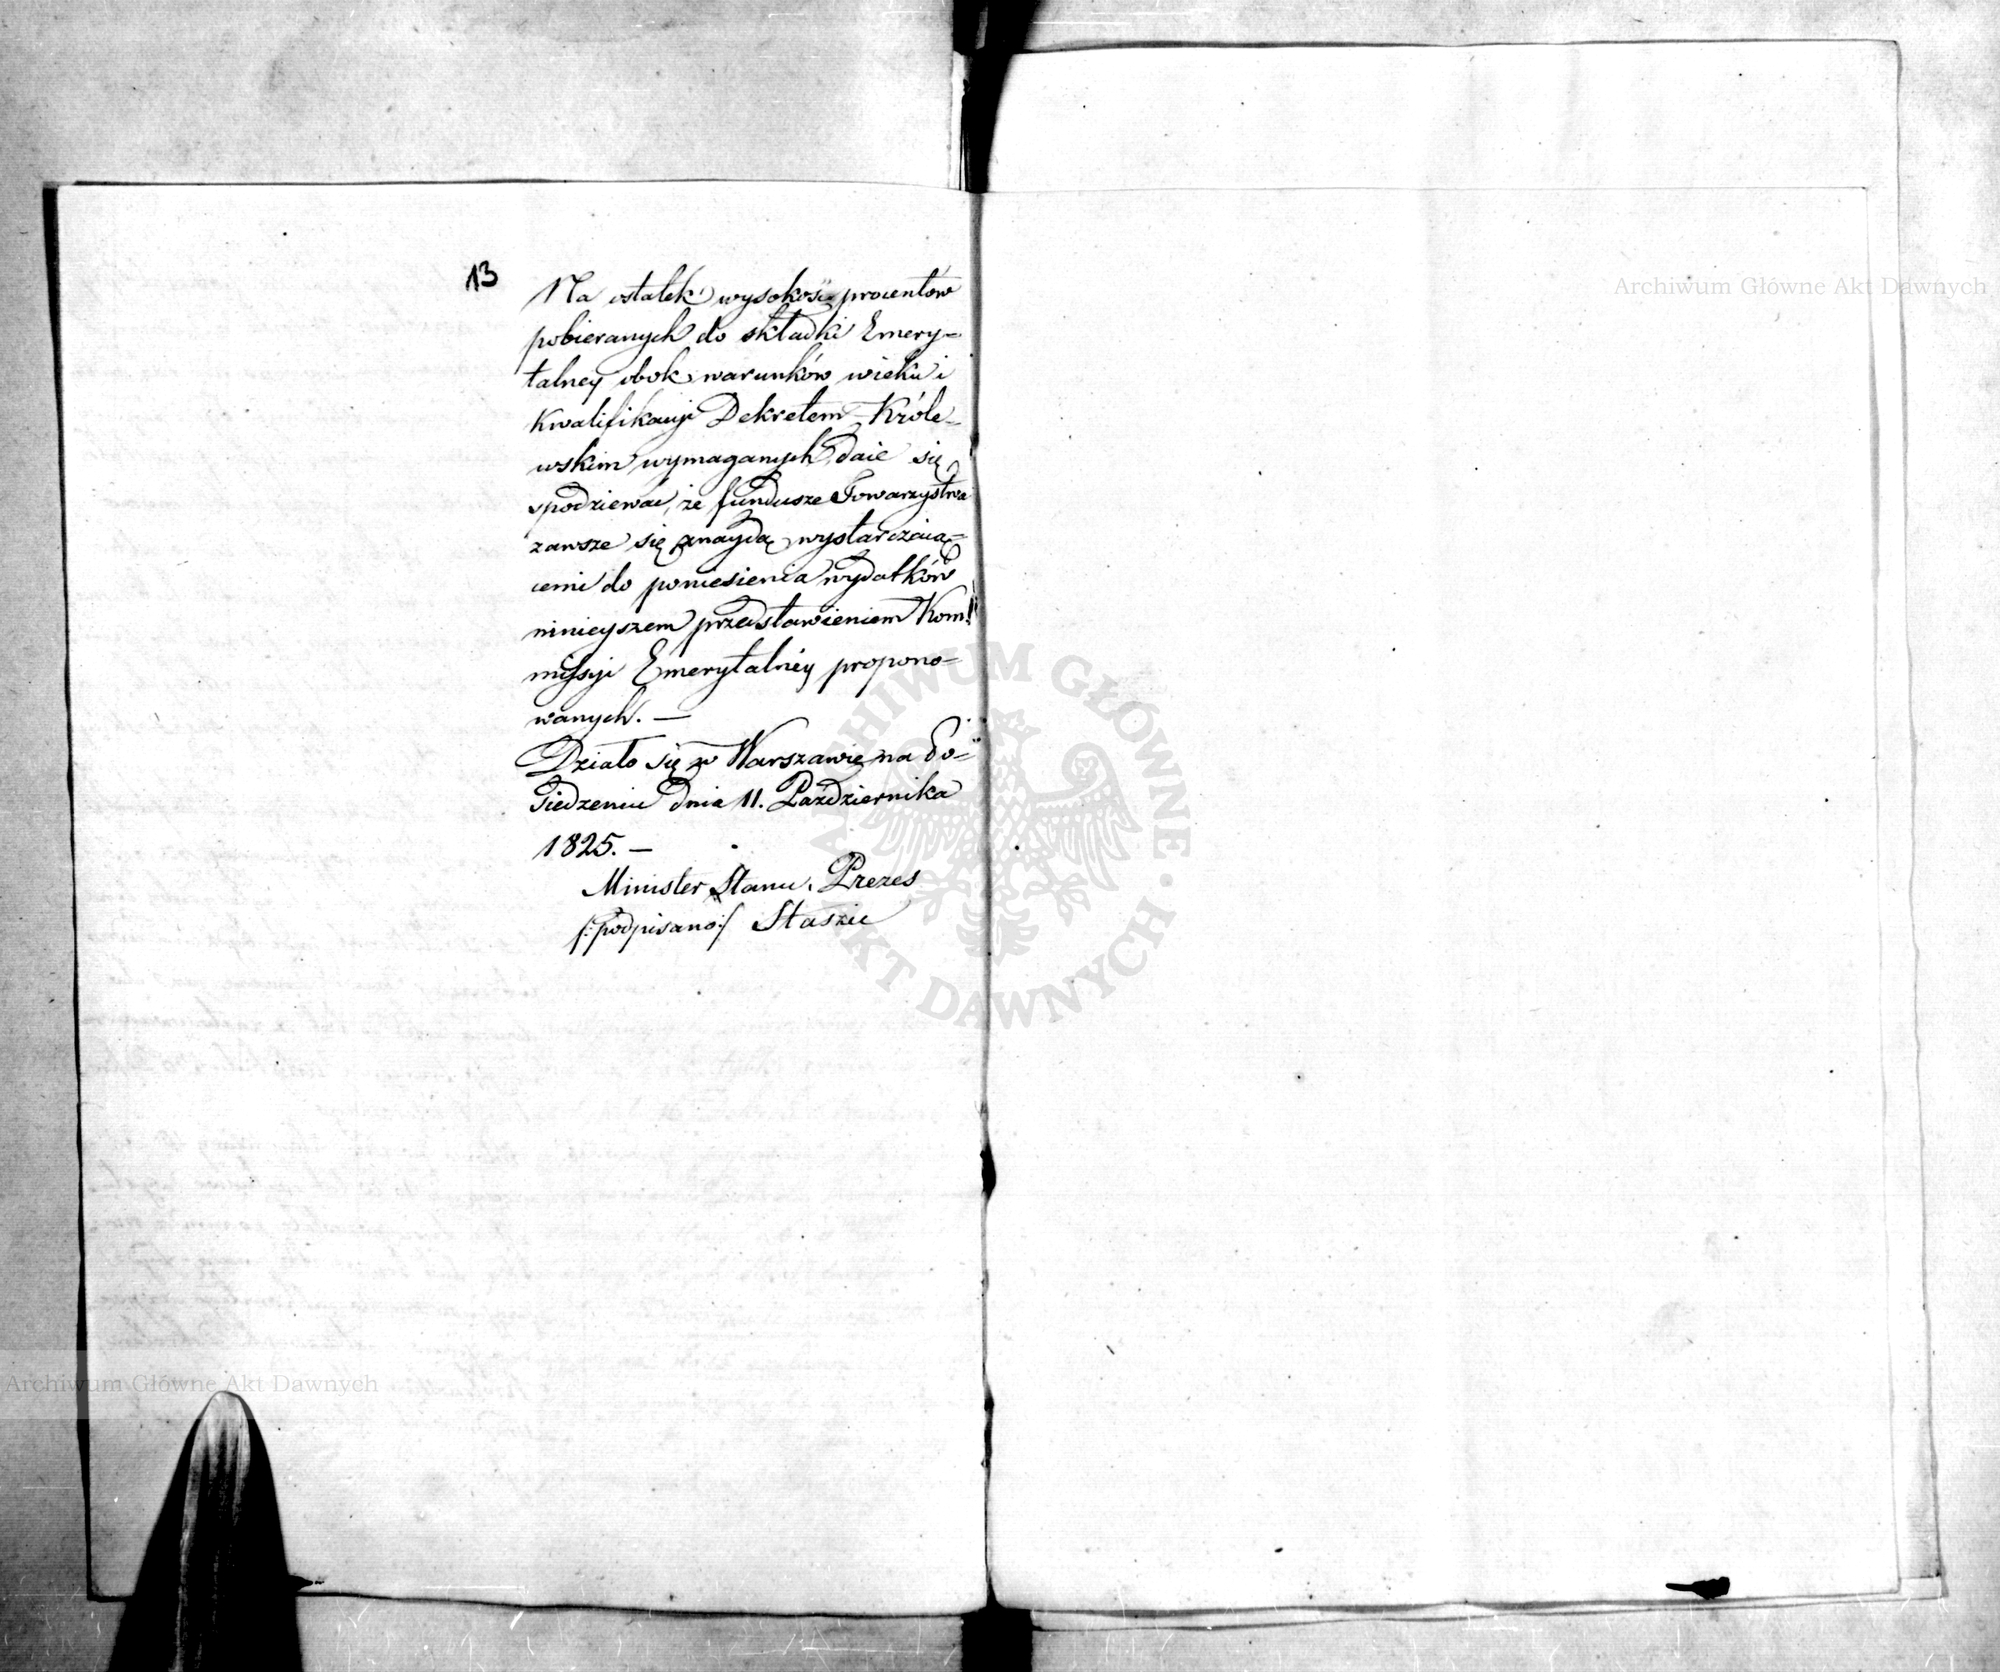 13
Na ostatek wysokość procentów
pobieranych do składki Emery=
talney obok warunków wieku i
kwalifikacyi Dekretem Króle=
wskim wymaganych, daie się
spodziewać, że fundusze Towarzystwa
zawsze się znaydą wystarczaią=
cemi do poniesienia wydatków
ninieyszem przedstawieniem Kom=
missyi Emerytalnéy propono=
wanych. —
Działo się w Warszawie na Po=
siedzeniu dnia 11. Października
1825. —
Minister Stanu, Prezes
/:podpisano:/ Staszic
ARCHIWUM GŁÓWNE AKT DAWNYCH
Archiwum Główne Akt Dawnych
Archiwum Główne Akt Dawnych